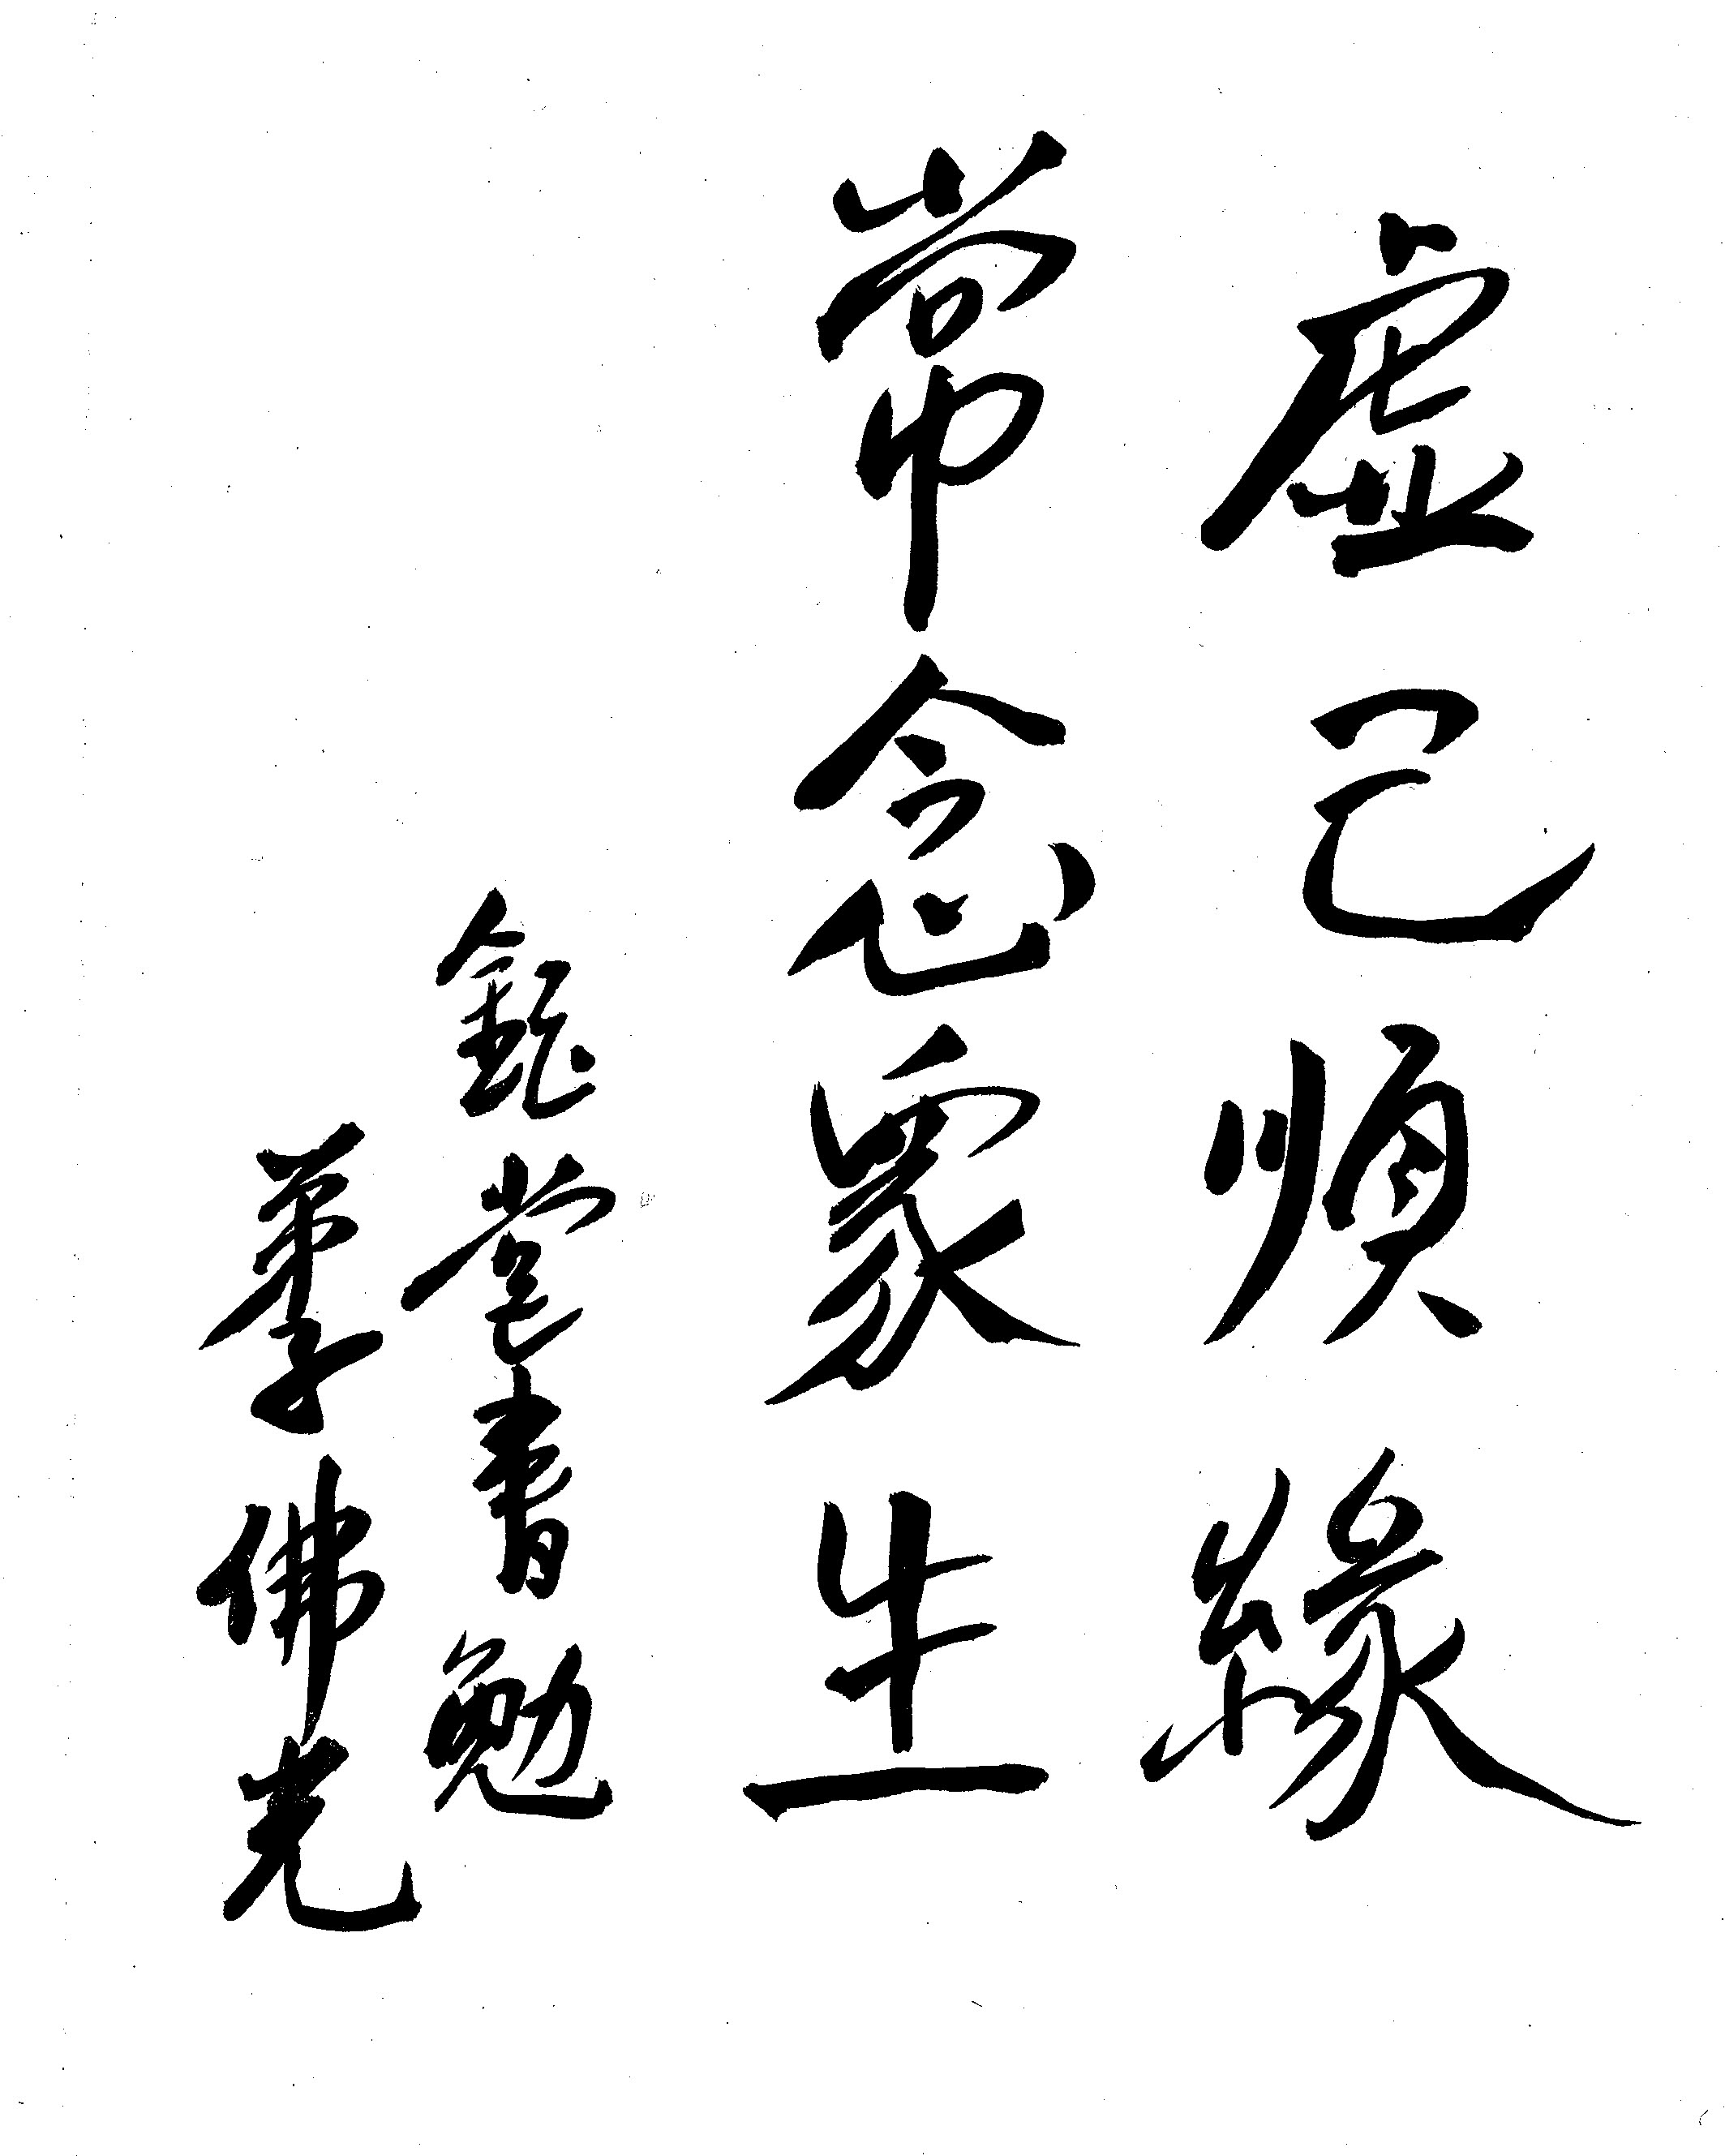 虛己順緣
常念眾生
堂書勉
弟子佛光